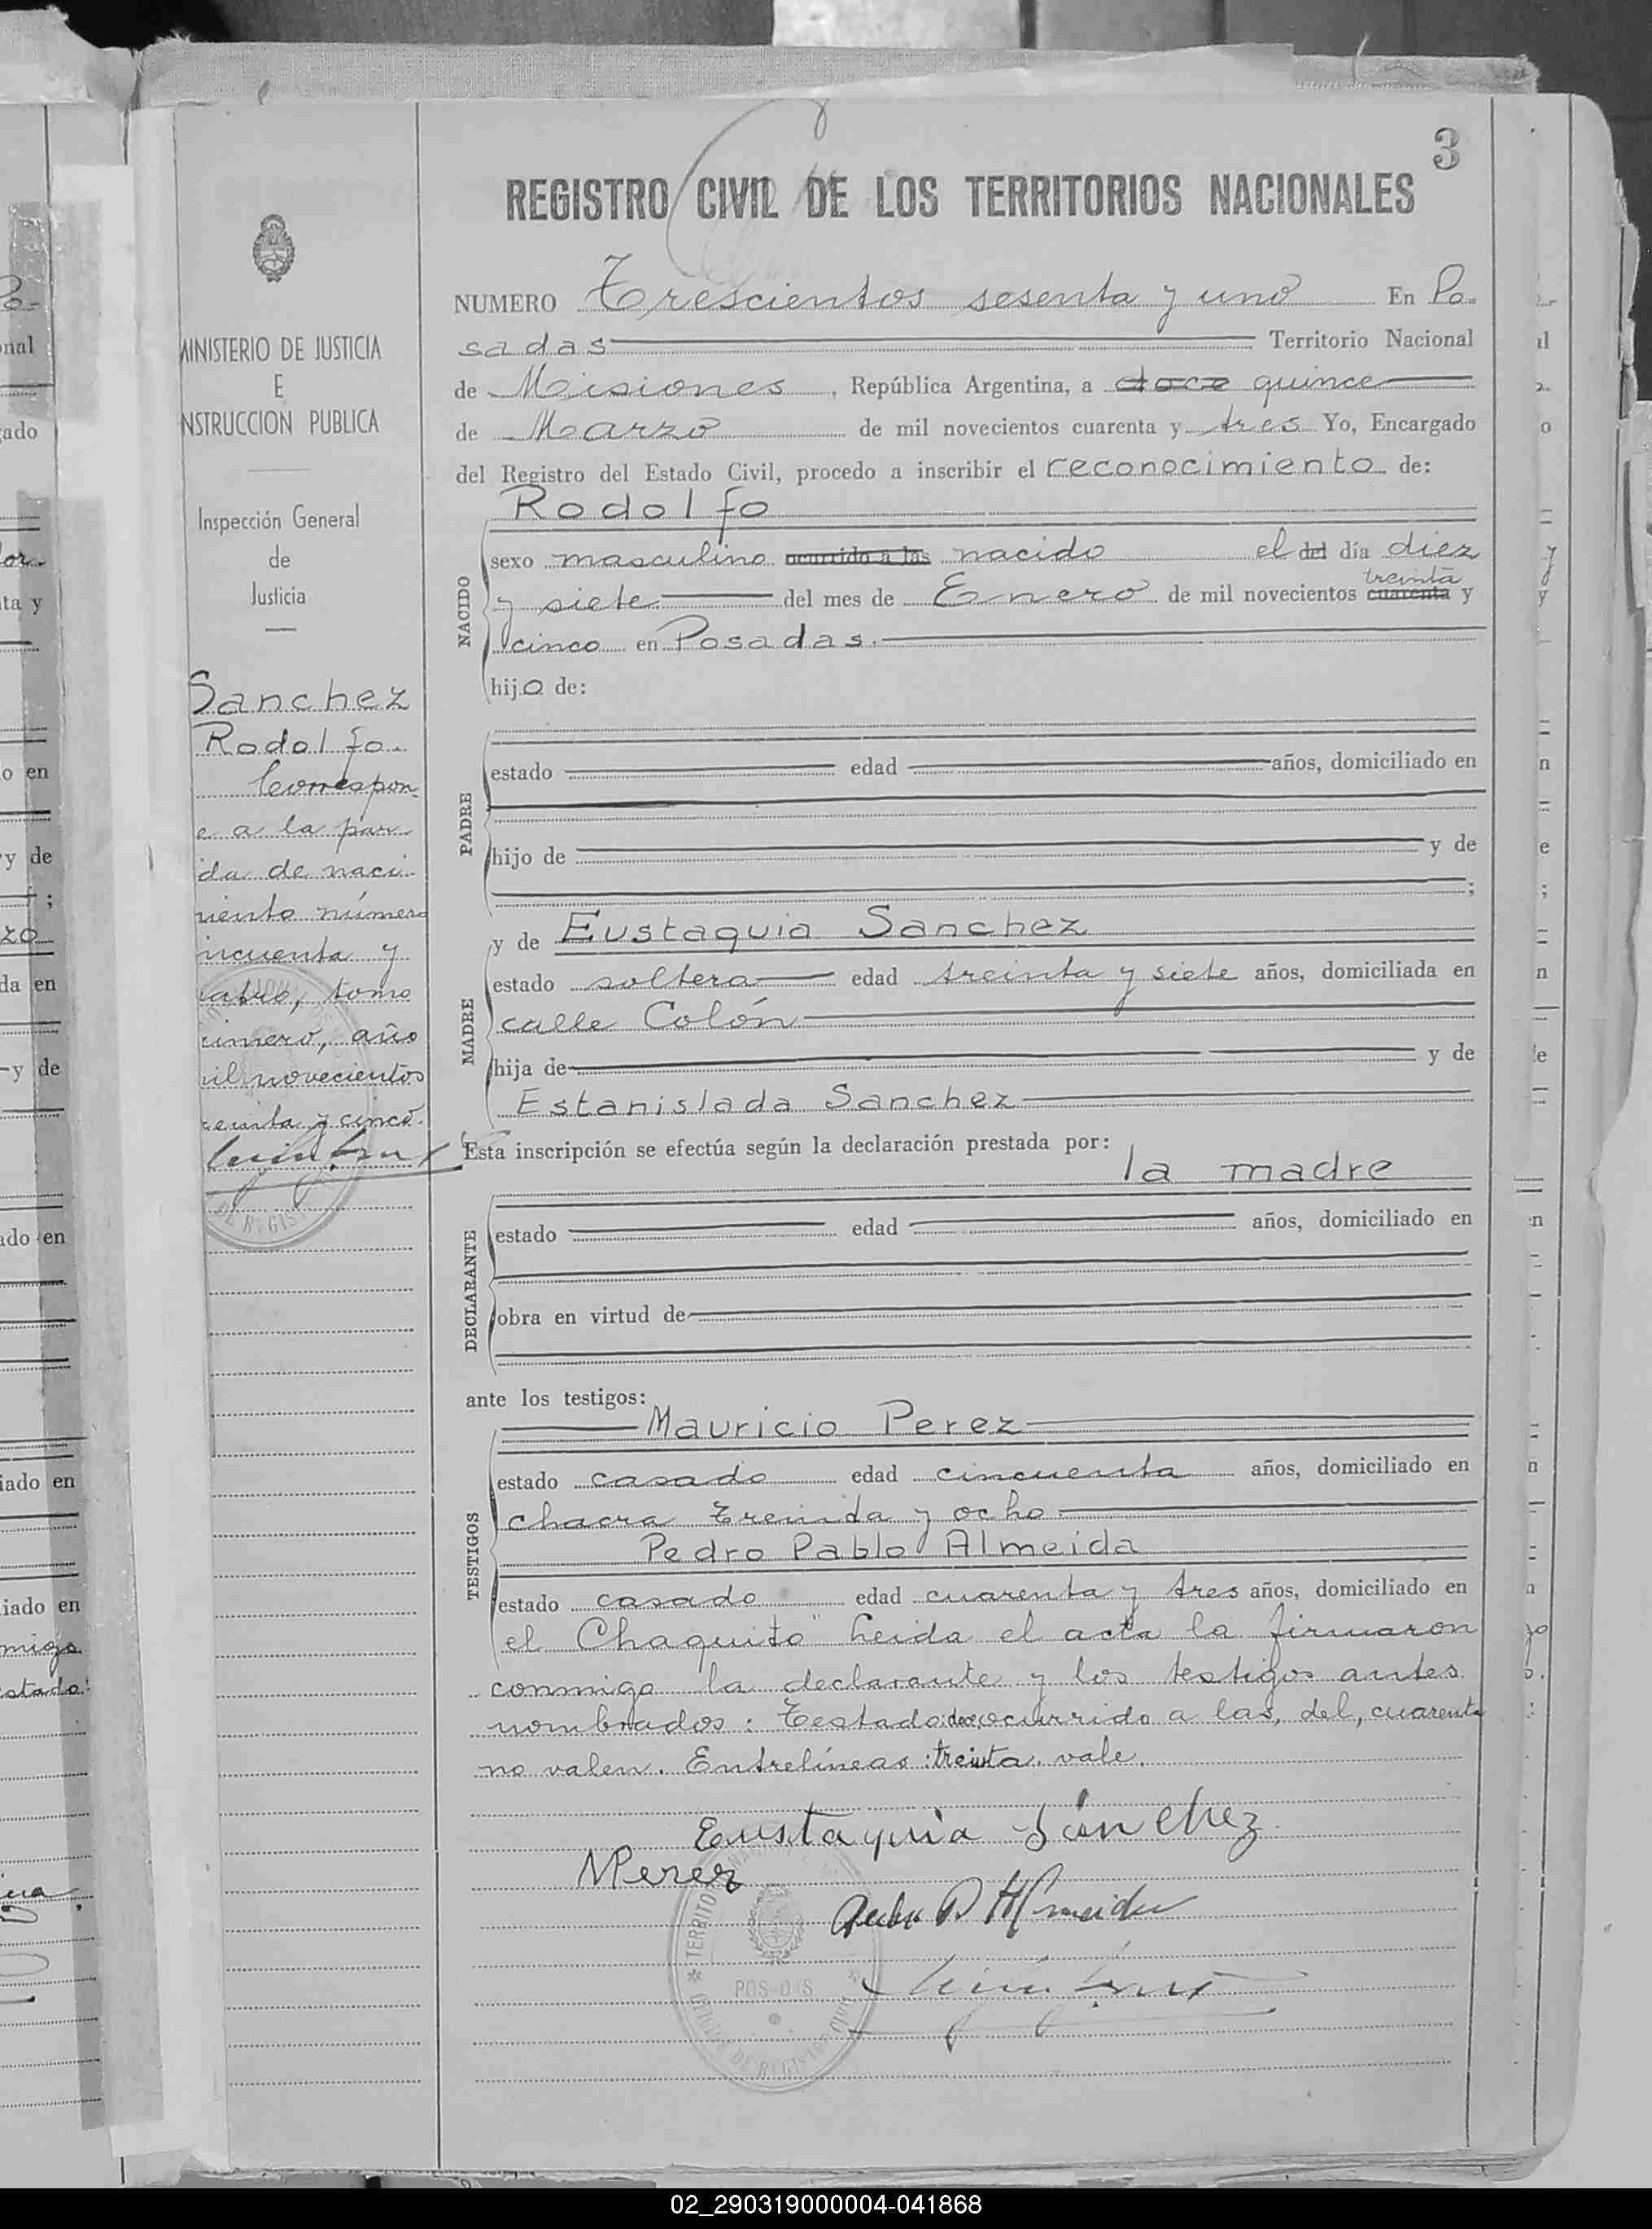 3
REGISTRO CIVIL DE LOS TERRITORIOS NACIONALES
MINISTERIO DE JUSTICIA
E
NSTRUCCION PUBLICA
Inspección General
de
Justicia
Sanchez
Rodolfo.
Correspon-
e a la par-
ida de naci-
miento número
incuenta y
uatro, tomo
rimero, año
mil novecientos
reinta y cinco.
NUMERO Trescientos sesenta y uno En Po-
sadas Territorio Nacional
de Misiones, República Argentina, a doce quince
de Marzo de mil novecientos cuarenta y tres Yo, Encargado
del Registro del Estado Civil, procedo a inscribir el reconocimiento de:
NACIDO
Rodolfo
sexo masculino ocurrido a las nacido el del día diez
treinta
y siete del mes de Enero de mil novecientos cuarenta y
cinco en Posadas.
hijo de:
PADRE
estado edad años, domiciliado en
hijo de y de
;
MADRE
y de Eustaquia Sanchez
estado soltera edad treinta y siete años, domiciliada en
calle Colón
hija de y de
Estanislada Sanchez
Esta inscripción se efectúa según la declaración prestada por:
la madre
DECLARANTE
estado edad años, domiciliado en
obra en virtud de
ante los testigos:
TESTIGOS
Mauricio Perez
estado casado edad cincuenta años, domiciliado en
chacra treinda y ocho
Pedro Pablo Almeida
estado casado edad cuarenta y tres años, domiciliado en
el Chaquito" Leida el acta la firmaron
conmigo la declarante y los testigos antes
nombrados: Testado: doce ocurrido a las, del, cuarenta
no valen. Entrelíneas: treinta. vale.
Eustaquia Sánchez
MPerez
Pedro P Almeida
TERRITO
POSADAS
02_290319000004-041868